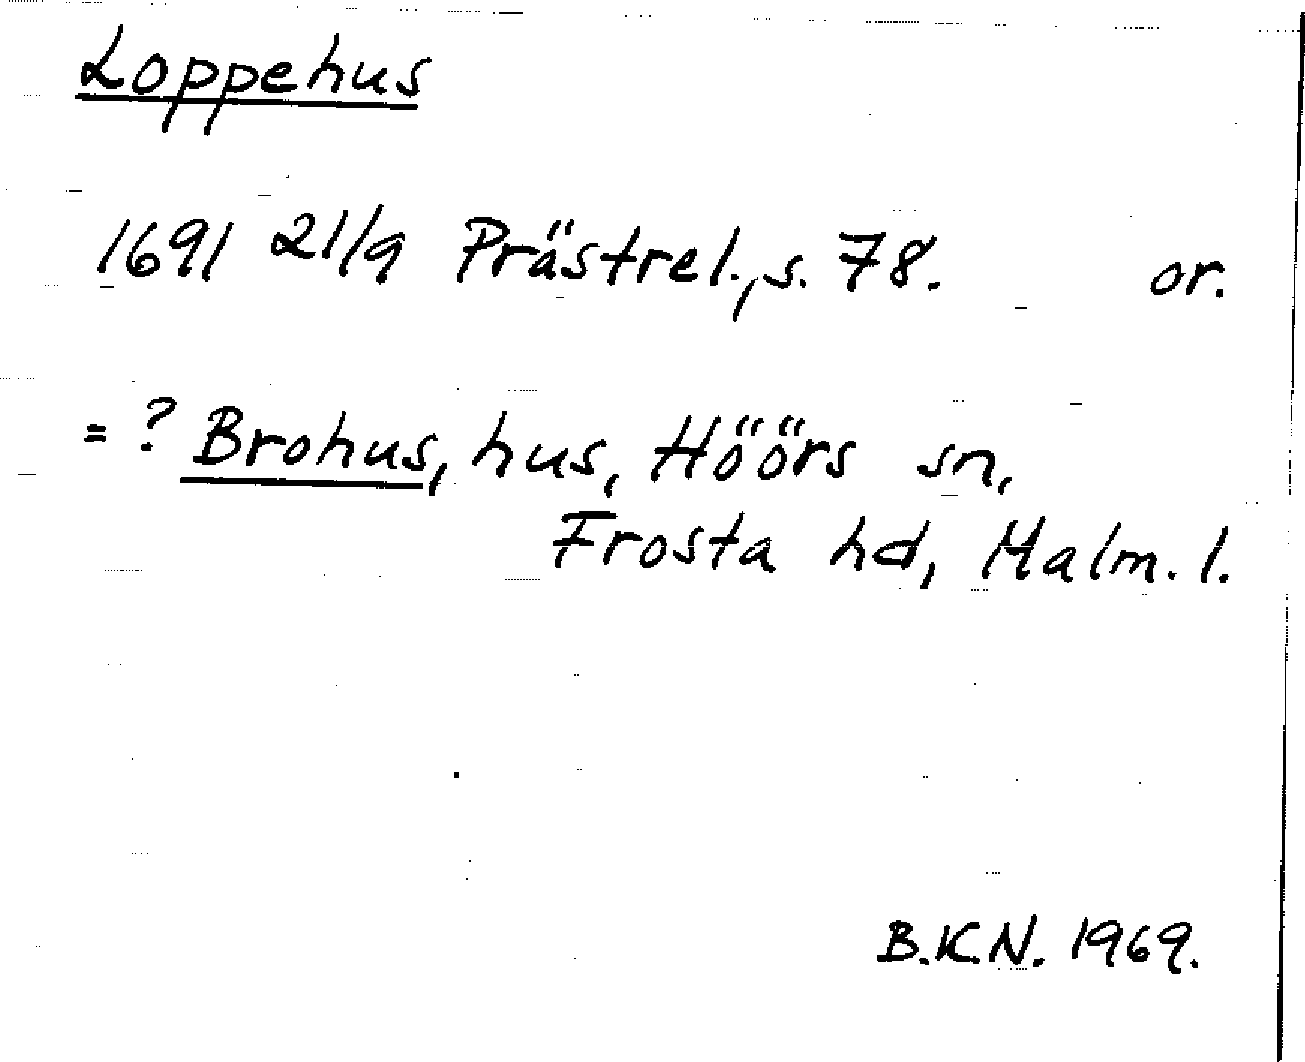 Loppehus
1691 21/9 Prästrel., s. 78. or.
= ? Brohus, hus, Höörs sn,
Frosta hd, Malm. l.
B.K.N. 1969.